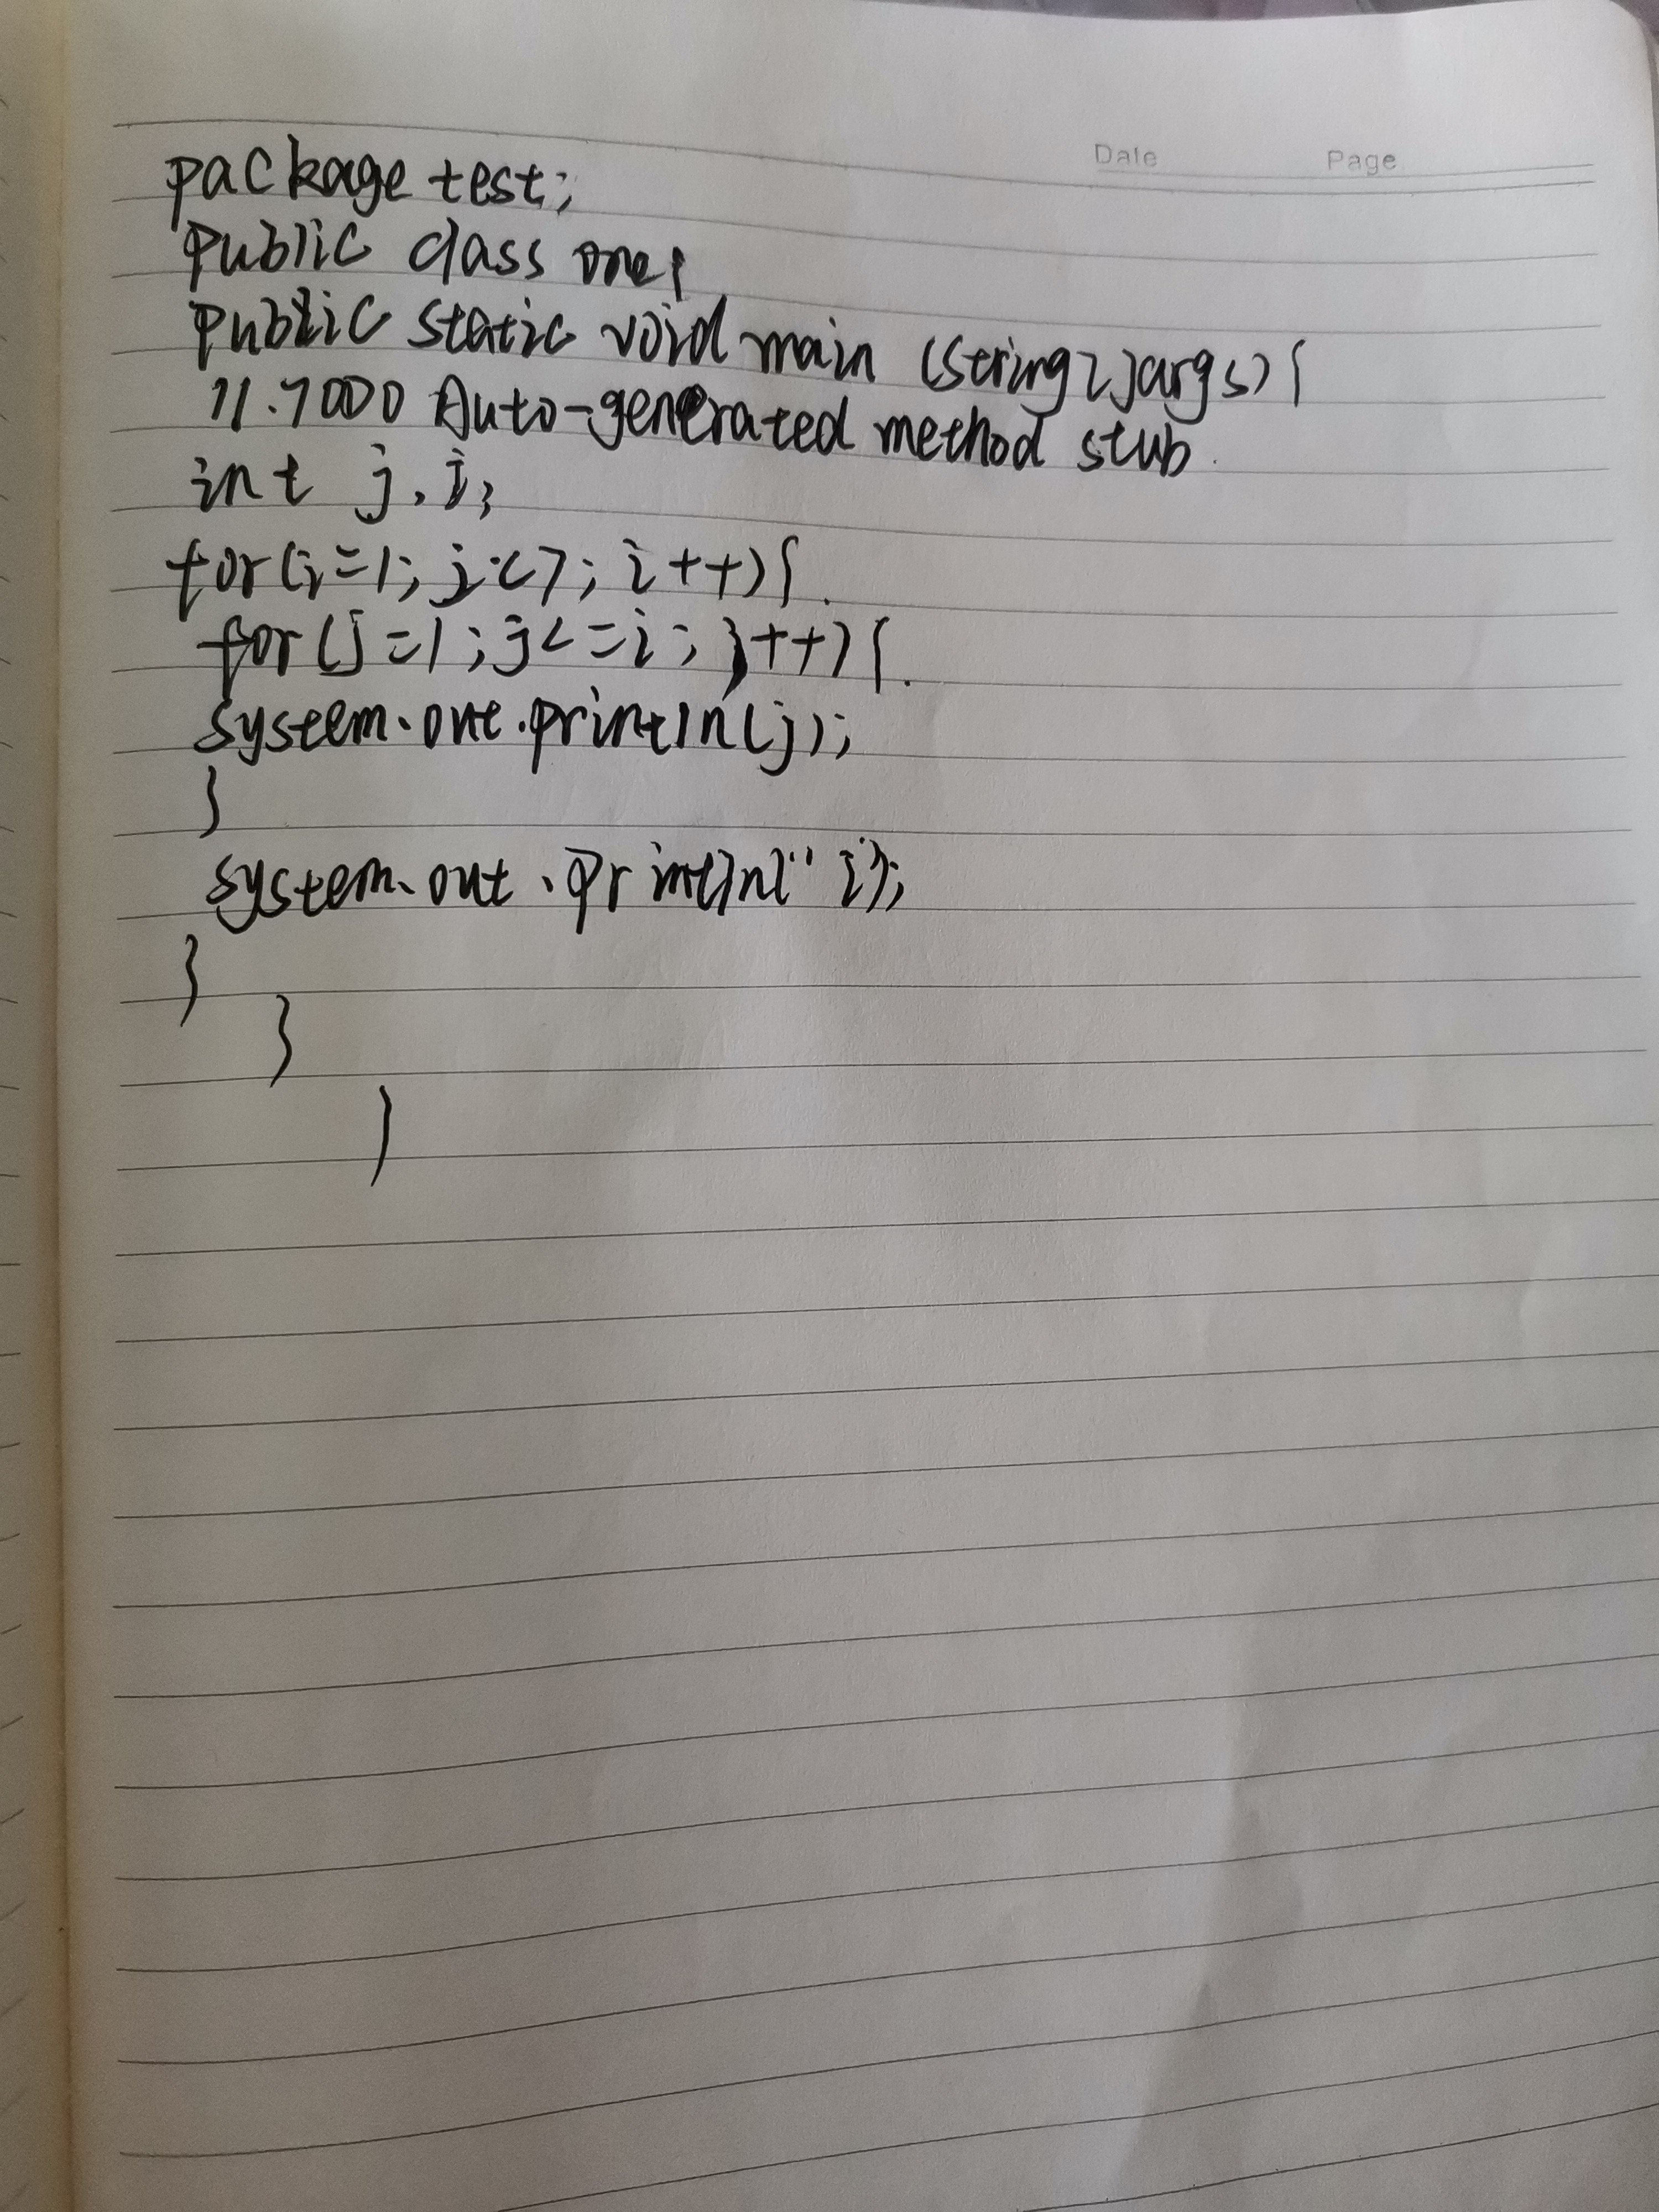 Date Page
package test;
public class one{
public static void main (string[]args){
//.TODO Auto-generated method stub.
int j, i;
for(i=1; i<7; i++){
for(j=1; j<=i; j++){
system.out.println(j);
}
system.out.println("i");
}
}
}